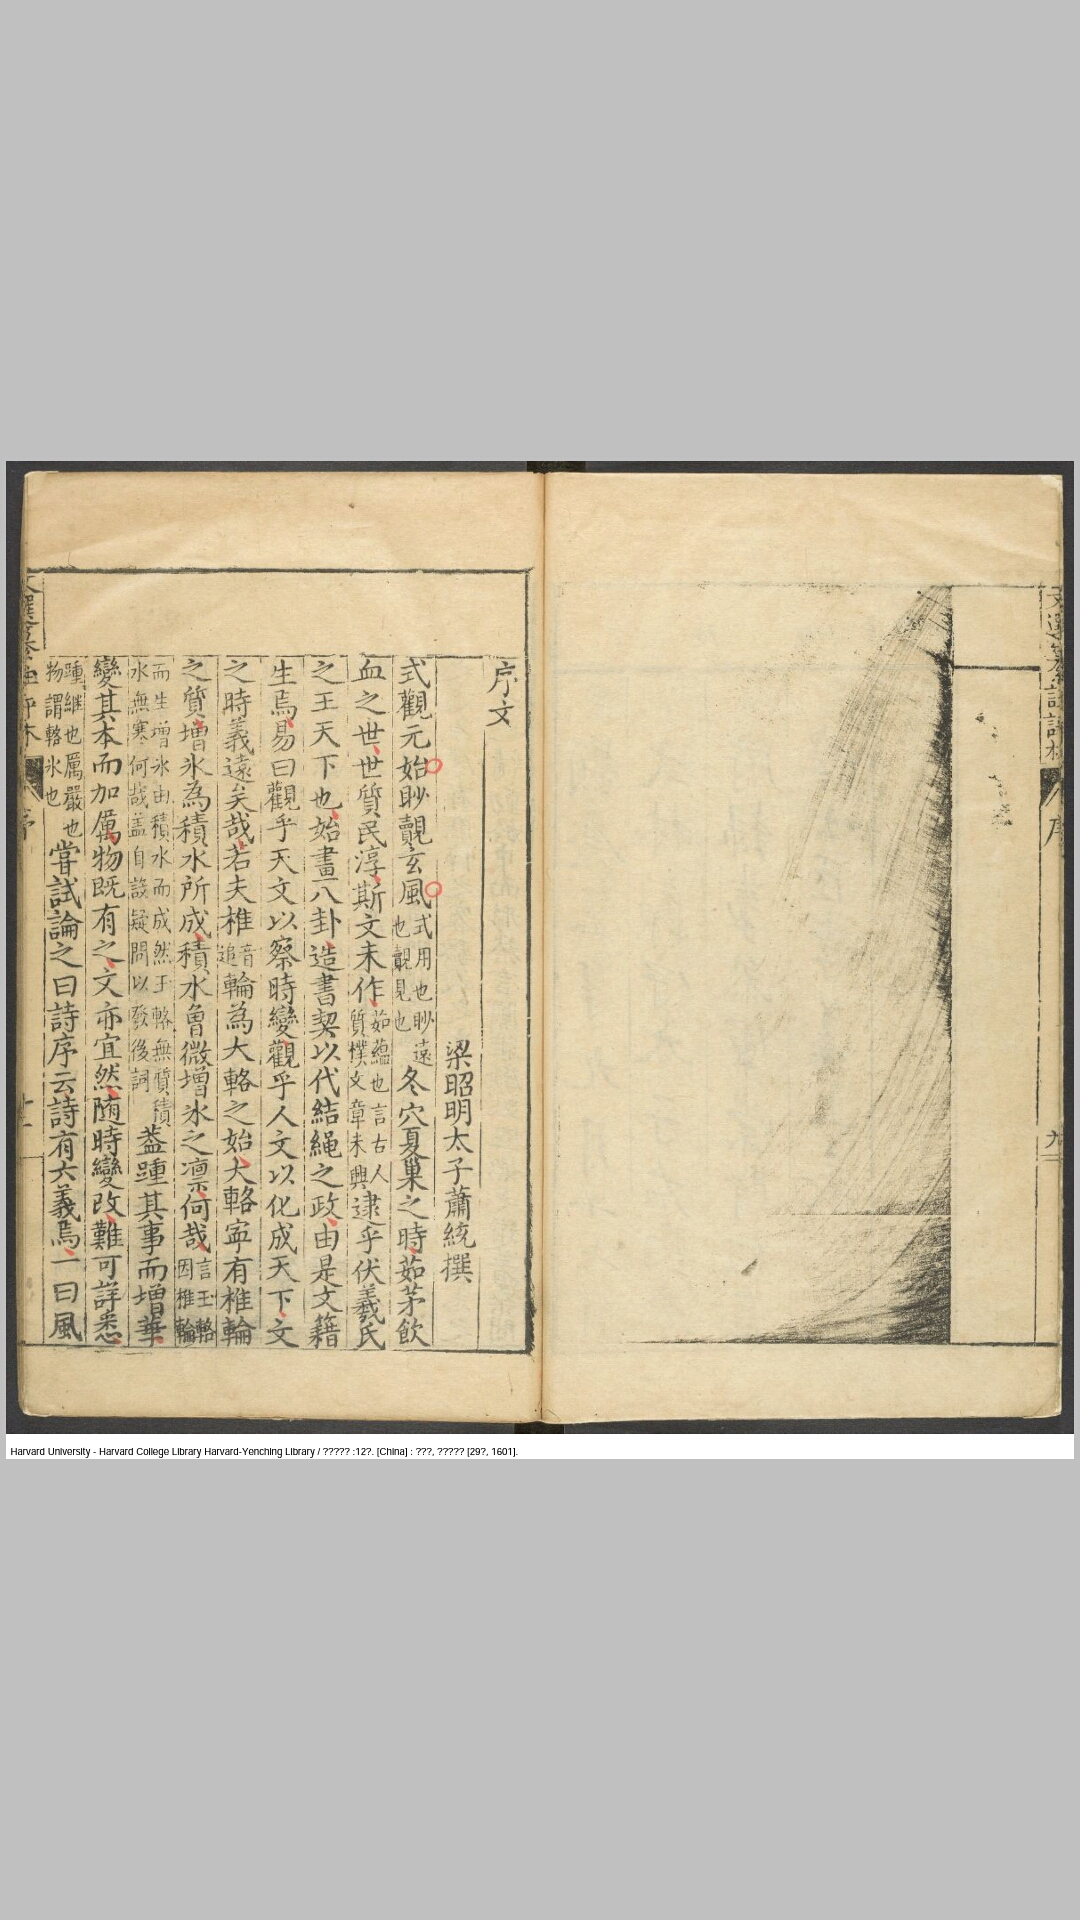 文選纂註評林
序
序文
梁昭明太子蕭統撰
式觀元始眇覿玄風式用也眇遠也覿見也冬穴夏巢之時茹茅飲
血之世世質民淳斯文未作茹蘊也言古人質樸文章未興逮乎伏羲氏
之王天下也始畫八卦造書契以代結繩之政由是文籍
生焉易曰觀乎天文以察時變觀乎人文以化成天下文
之時義遠矣哉若夫椎音追輪為大輅之始大輅寕有椎輪
之質增氷為積水所成積水曾微增氷之凛何哉言玉輅因椎輪
而生增氷由積水而成然玉輅無質積水無寒何哉盖自設疑問以發後詞葢踵其事而增華
變其本而加厲物既有之文亦宜然随時變改難可詳悉
踵継也厲嚴也物謂輅氷也嘗試論之曰詩序云詩有六義焉一曰風
Harvard University - Harvard College Library Harvard-Yenching Library / ????? :12?. [China] : ???, ????? [29?, 1601].